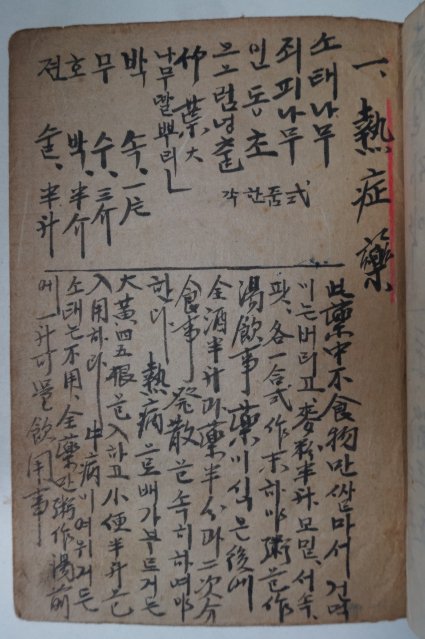 一、熱症藥
소태나무
죄피나무
인동초
으그럼넝출
각한줌式
竹葉、大
나무말뿌리
박 속、一片
무 수、三介
호 박、半介
전 술、半升
此藥中不食物만쌀마서
이는버리고麥粉半升모밀、서속、
팟、各一合式作末하야粥을作
湯飮事藥이식은後에
全酒半升과藥半分과二次分
食事 発散을속히하며야
한다 熱病으로배가부르거든
大黃四五根을入하고小便半升을
入用하라 病이여위거든
소태는不用、全藥만粥作湯前
에一升可量飮用事